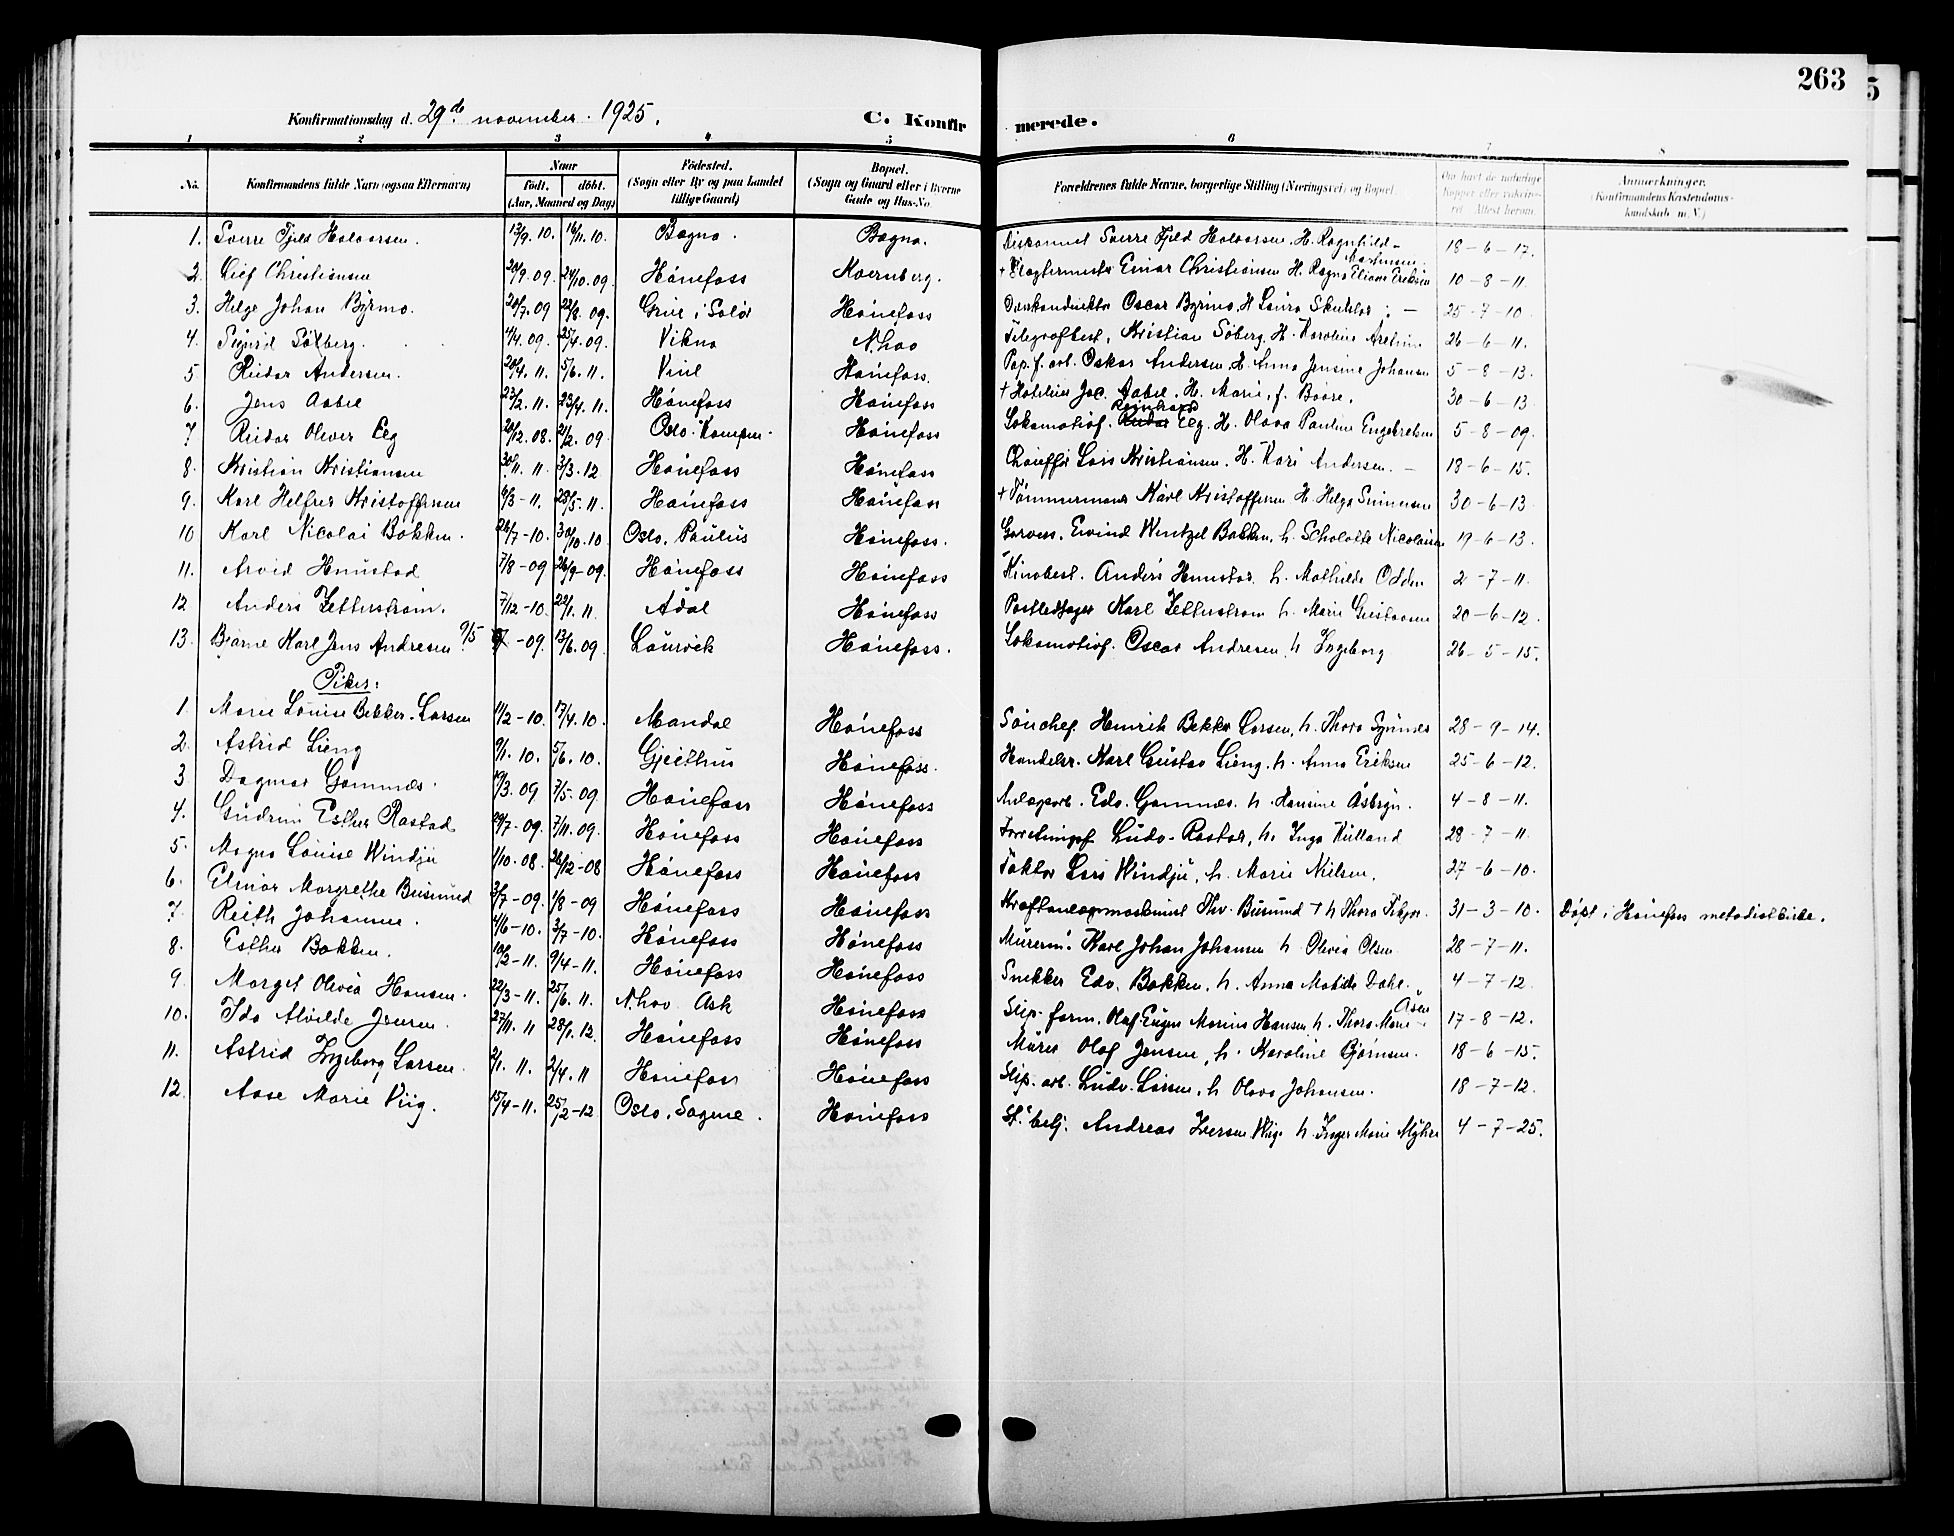 263
5
Konfirmationsdag d. 29de november 1925. C. Konfirmerede.
1 2 3 4 5 6 7 8
No. Konfirmandens fulde Navn (ogsaa Efternavn) Naar født. døbt. (Aar, Maaned og Dag) Fødested. (Sogn eller By og paa Landet tillige Gaard) Bopæl. (Sogn og Gaard eller i Byerne Gade og Hus-No. Forældrenes fulde Navne, borgerlige Stilling (Næringsvei) og Bopæl. Om havt de naturlige Kopper eller vakcineret. Attest herom. Anmærkninger. (Konfirmandens Kristendomskundskab m. V.)
1. Sverre Fjeld Halvorsen. 13/9. 10. 16/11. 10. Bagn. Bagn. Sverre Fjeld Halvorsen. H. Ragnhild Martinsen 18-6-17.
2. Leif Christiansen 20/9. 09. 24/10. 09. Hønefoss Kvernberg. + Einar Christiansen H. Ragna Eliane Eriksen 10-8-11.
3. Helge Johan Byrmo. 20/7. 09 22/8. 09. Grue i Solør Hønefoss Oscar Byrmo, H. Laura 25-7-10.
4. Sigurd Solberg. 4/4. 09. 25/4. 09. Vikna N.hov Telegrafbest. Kristian Søberg. H. Karoline 26-6-11.
5 Reidar Andersen. 20/4. 11. 5/6. 11. Hønefoss. Pap.f. arb. Oskar Andersen, H. Anna Jensine Johansen 5-8-13.
6. Jens Aabel 23/2. 11. 23/4. 11. Hønefoss Hønefoss + Hotelier Jac. Aabel. H. Marie, f. 30-6-13
7 Reidar Oliver Elg 20/12. 08. 21/2. 09. Oslo. Kampen. Hønefoss Lokomotivf. Reinhard Elg. H. Olava Pauline Engebretsen 5-8-09.
8. Kristian Kristiansen 30/11. 11. 3/3. 12 Hønefoss Hønefoss Chauffør Lars Kristiansen. H. Kari Andersen. 18-6-15.
9. Karl Helfrer Kristoffersen 6/3-11. 28/5. 11. Hønefoss Hønefoss + Tømmermann Karl Kristoffersen H. Helga 30-6-13
10 Karl Nicolai Bakken. 26/7-10. 30/10. 10 Oslo, Paulus Hønefoss. Eivind Wentzel Bakken, h. Nicolaisen 19-6-13.
11. Arvid Hmustad 7/8-09 26/9-09. Hønefoss Hønefoss Kinobest. Anders h. Mathilde Odden 2-7-11.
12 Anders Zetterstrøm. 7/12-10. 22/1. 11. Ådal Hønefoss Karl Zetterstrøm h. Marie Gustavsen 20-6-12.
13. Bjarne Karl Jens Andresen 9/5 -09. 13/6. 09. Laurvik Hønefoss. Lokomotivf. Oscar Andresen, h. Ingeborg 26-5-15.
Piker:
1. Marie Louise Bekker-Larsen 11/2-10. 17/4. 10. Mandal Hønefoss Henrik Bekker Larsen, h. Thora 28-9-14.
2. Astrid Lieng 9/1. 10. 5/6. 10. Gjeithus Hønefoss. Handelsr. Karl Gustav Lieng, h. Anna Eriksen 25-6-12.
3 Dagmar Gamnæs. 19/3. 09 7/5. 09 Hønefoss Hønefoss Edv. Gamnæs. h. Hansine 4-8-11.
4. Gudrun Esther Rastad 29/7-09. 7/11. 09. Hønefoss Hønefoss Ludv. Rastad, h. Inga 28-7-11
5. Magna Louise Windju 1/10. 08. 26/12-08 Hønefoss Hønefoss Faktor Lars Windju, h. Marie Nielsen. 27-6-10.
6. Elinor Margrethe Busund 3/7-09. 1/8-09 Hønefoss Hønefoss Thv. Busund + h. Thora 31-3-10. Døpt i Hønefoss metodistkirke.
7. Reith Johansen. 4/6-10. 3/7-10. Hønefoss Hønefoss Murerm. Karl Johan Johansen h. Olivia Olsen 28-7-11.
8. Esther Bakken. 10/2-11. 9/4-11. Hønefoss Hønefoss Snekker Edv. Bakken, h. Anna Matilde Dahl. 4-7-12.
9 Margit Olivia Hansen. 22/3-11. 25/6. 11. N.hov Ask Hønefoss Slip. form. Olaf Eugen Marius Hansen h. Thora Marie Åsen 17-8-12.
10. Ida Alvilde Jensen. 27/11. 11 28/1. 12. Hønefoss Hønefoss Murer Olaf Jensen, h. Karoline Bjørnsen. 18-6-15.
11. Astrid Ingeborg Larsen. 2/1. 11. 2/4. 11 Hønefoss Hønefoss Slip. arb. Ludv. Larsen, h. Olava Johansen. 18-7-12.
12. Aase Marie Viig. 15/4-11. 25/2-12 Oslo, Sagene. Hønefoss St. betj. Andreas Iversen Wiig h. Inger Marie Myhre 4-7-25.